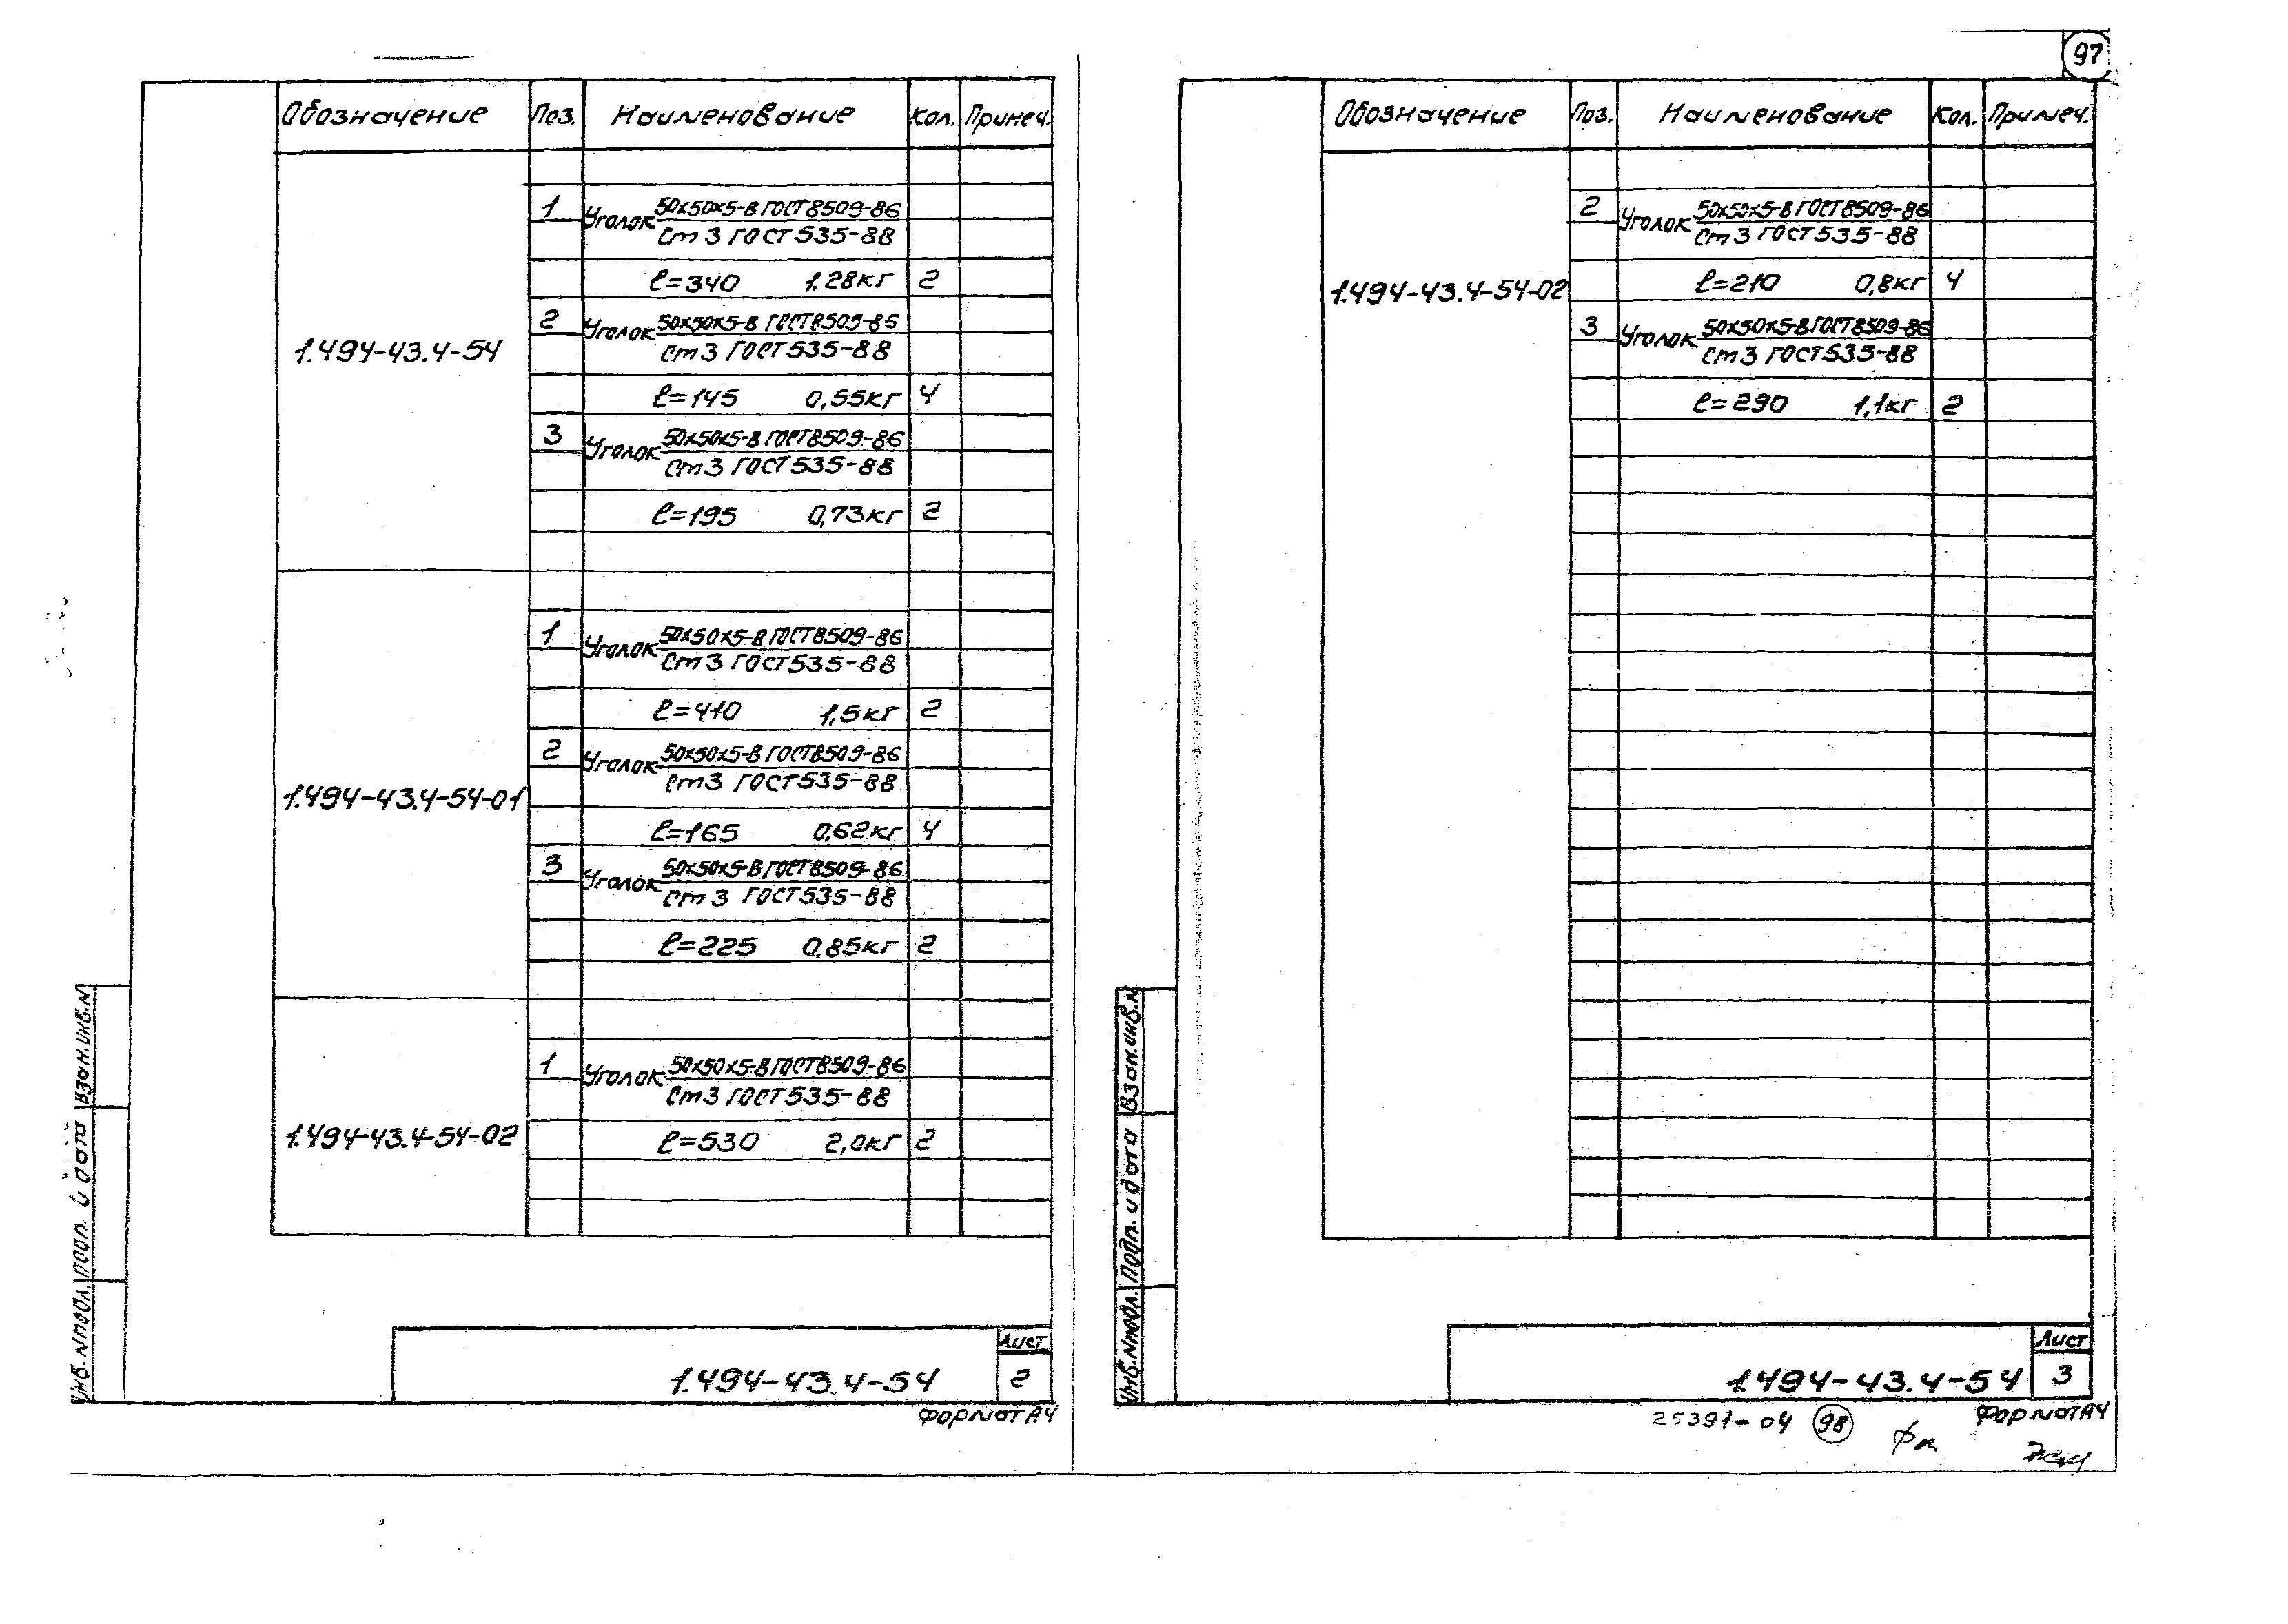 97
Обозначение Поз. Наименование Кол. Примеч.
1.494-43.4-54
1 Уголок 50х50х5-В ГОСТ 8509-86
Ст 3 ГОСТ 535-88
ℓ=340 1,28кг 2
2 Уголок 50х50х5-В ГОСТ 8509-86
Ст 3 ГОСТ 535-88
ℓ=145 0,55кг 4
3 Уголок 50х50х5-В ГОСТ 8509-86
Ст 3 ГОСТ 535-88
ℓ=195 0,73кг 2
1.494-43.4-54-01
1 Уголок 50х50х5-В ГОСТ 8509-86
Ст 3 ГОСТ 535-88
ℓ=410 1,5кг 2
2 Уголок 50х50х5-В ГОСТ 8509-86
Ст 3 ГОСТ 535-88
ℓ=165 0,62кг 4
3 Уголок 50х50х5-В ГОСТ 8509-86
Ст 3 ГОСТ 535-88
ℓ=225 0,85кг 2
1.494-43.4-54-02
1 Уголок 50х50х5-В ГОСТ 8509-86
Ст 3 ГОСТ 535-88
ℓ=530 2,0кг 2
Инв. N подл. Подп. и дата Взам. инв. N
1.494-43.4-54
Лист
2
Формат А4
Обозначение Поз. Наименование Кол. Примеч.
1.494-43.4-54-02
2 Уголок 50х50х5-В ГОСТ 8509-86
Ст 3 ГОСТ 535-88
ℓ=210 0,8кг 4
3 Уголок 50х50х5-В ГОСТ 8509-86
Ст 3 ГОСТ 535-88
ℓ=290 1,1кг 2
Инв. N подл. Подп. и дата Взам. инв. N
1.494-43.4-54
Лист
3
Формат А4
25391-04 98